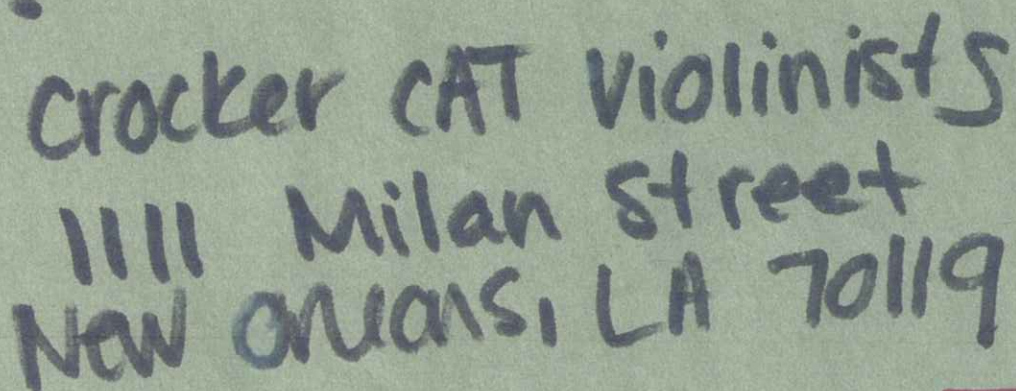 Crocker CAT Violinists
1111 Milan Street
New Orleans, LA 70119